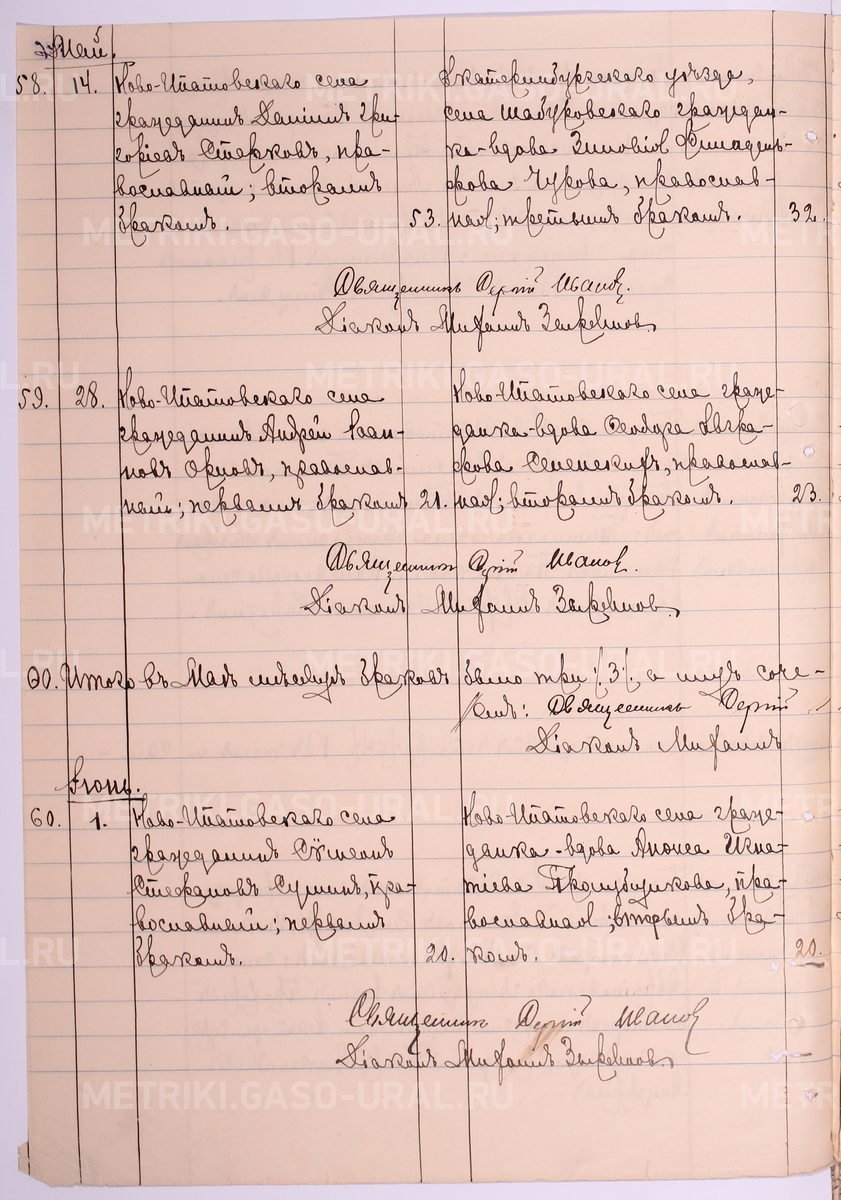 Май.
58. 14. Ново-Ипатовскаго села
гражданинъ Данiилъ Гри-
горiевъ Старковъ, пра-
вославный; вторымъ
бракомъ. 53.
Екатеринбургскаго уѣзда,
села Шабуровскаго граждан-
ка-вдова Зиновiя
Чурова, православ-
ная; третьимъ бракомъ. 32.
Священникъ Сергiй Ивановъ.
Дiаконъ Михаилъ
59. 28. Ново-Ипатовскаго села
гражданинъ Андрей Iоан-
новъ Орловъ, православ-
ный; первымъ бракомъ 21.
Ново-Ипатовскаго села граж-
данка-вдова Ѳеодора Евгра-
фова православ-
ная; вторымъ бракомъ. 23.
Священникъ Сергiй Ивановъ.
Дiаконъ Михаилъ
Итого въ Маѣ мѣсяцѣ браковъ было три /.3./ а лицъ соче-
Священникъ Сергiй
Дiаконъ Михаилъ
Iюнь.
60. 1. Ново-Ипатовскаго села
гражданинъ Сѵмеонъ
Стефановъ Сушинъ, пра-
вославный; первымъ
бракомъ. 20.
Ново-Ипатовскаго села граж-
данка-вдова Игна-
тiева пра-
вославная; вторымъ бра-
комъ. 20.
Священникъ Сергiй Ивановъ
Дiаконъ Михаилъ
METRIKI.GASO-URAL.RU